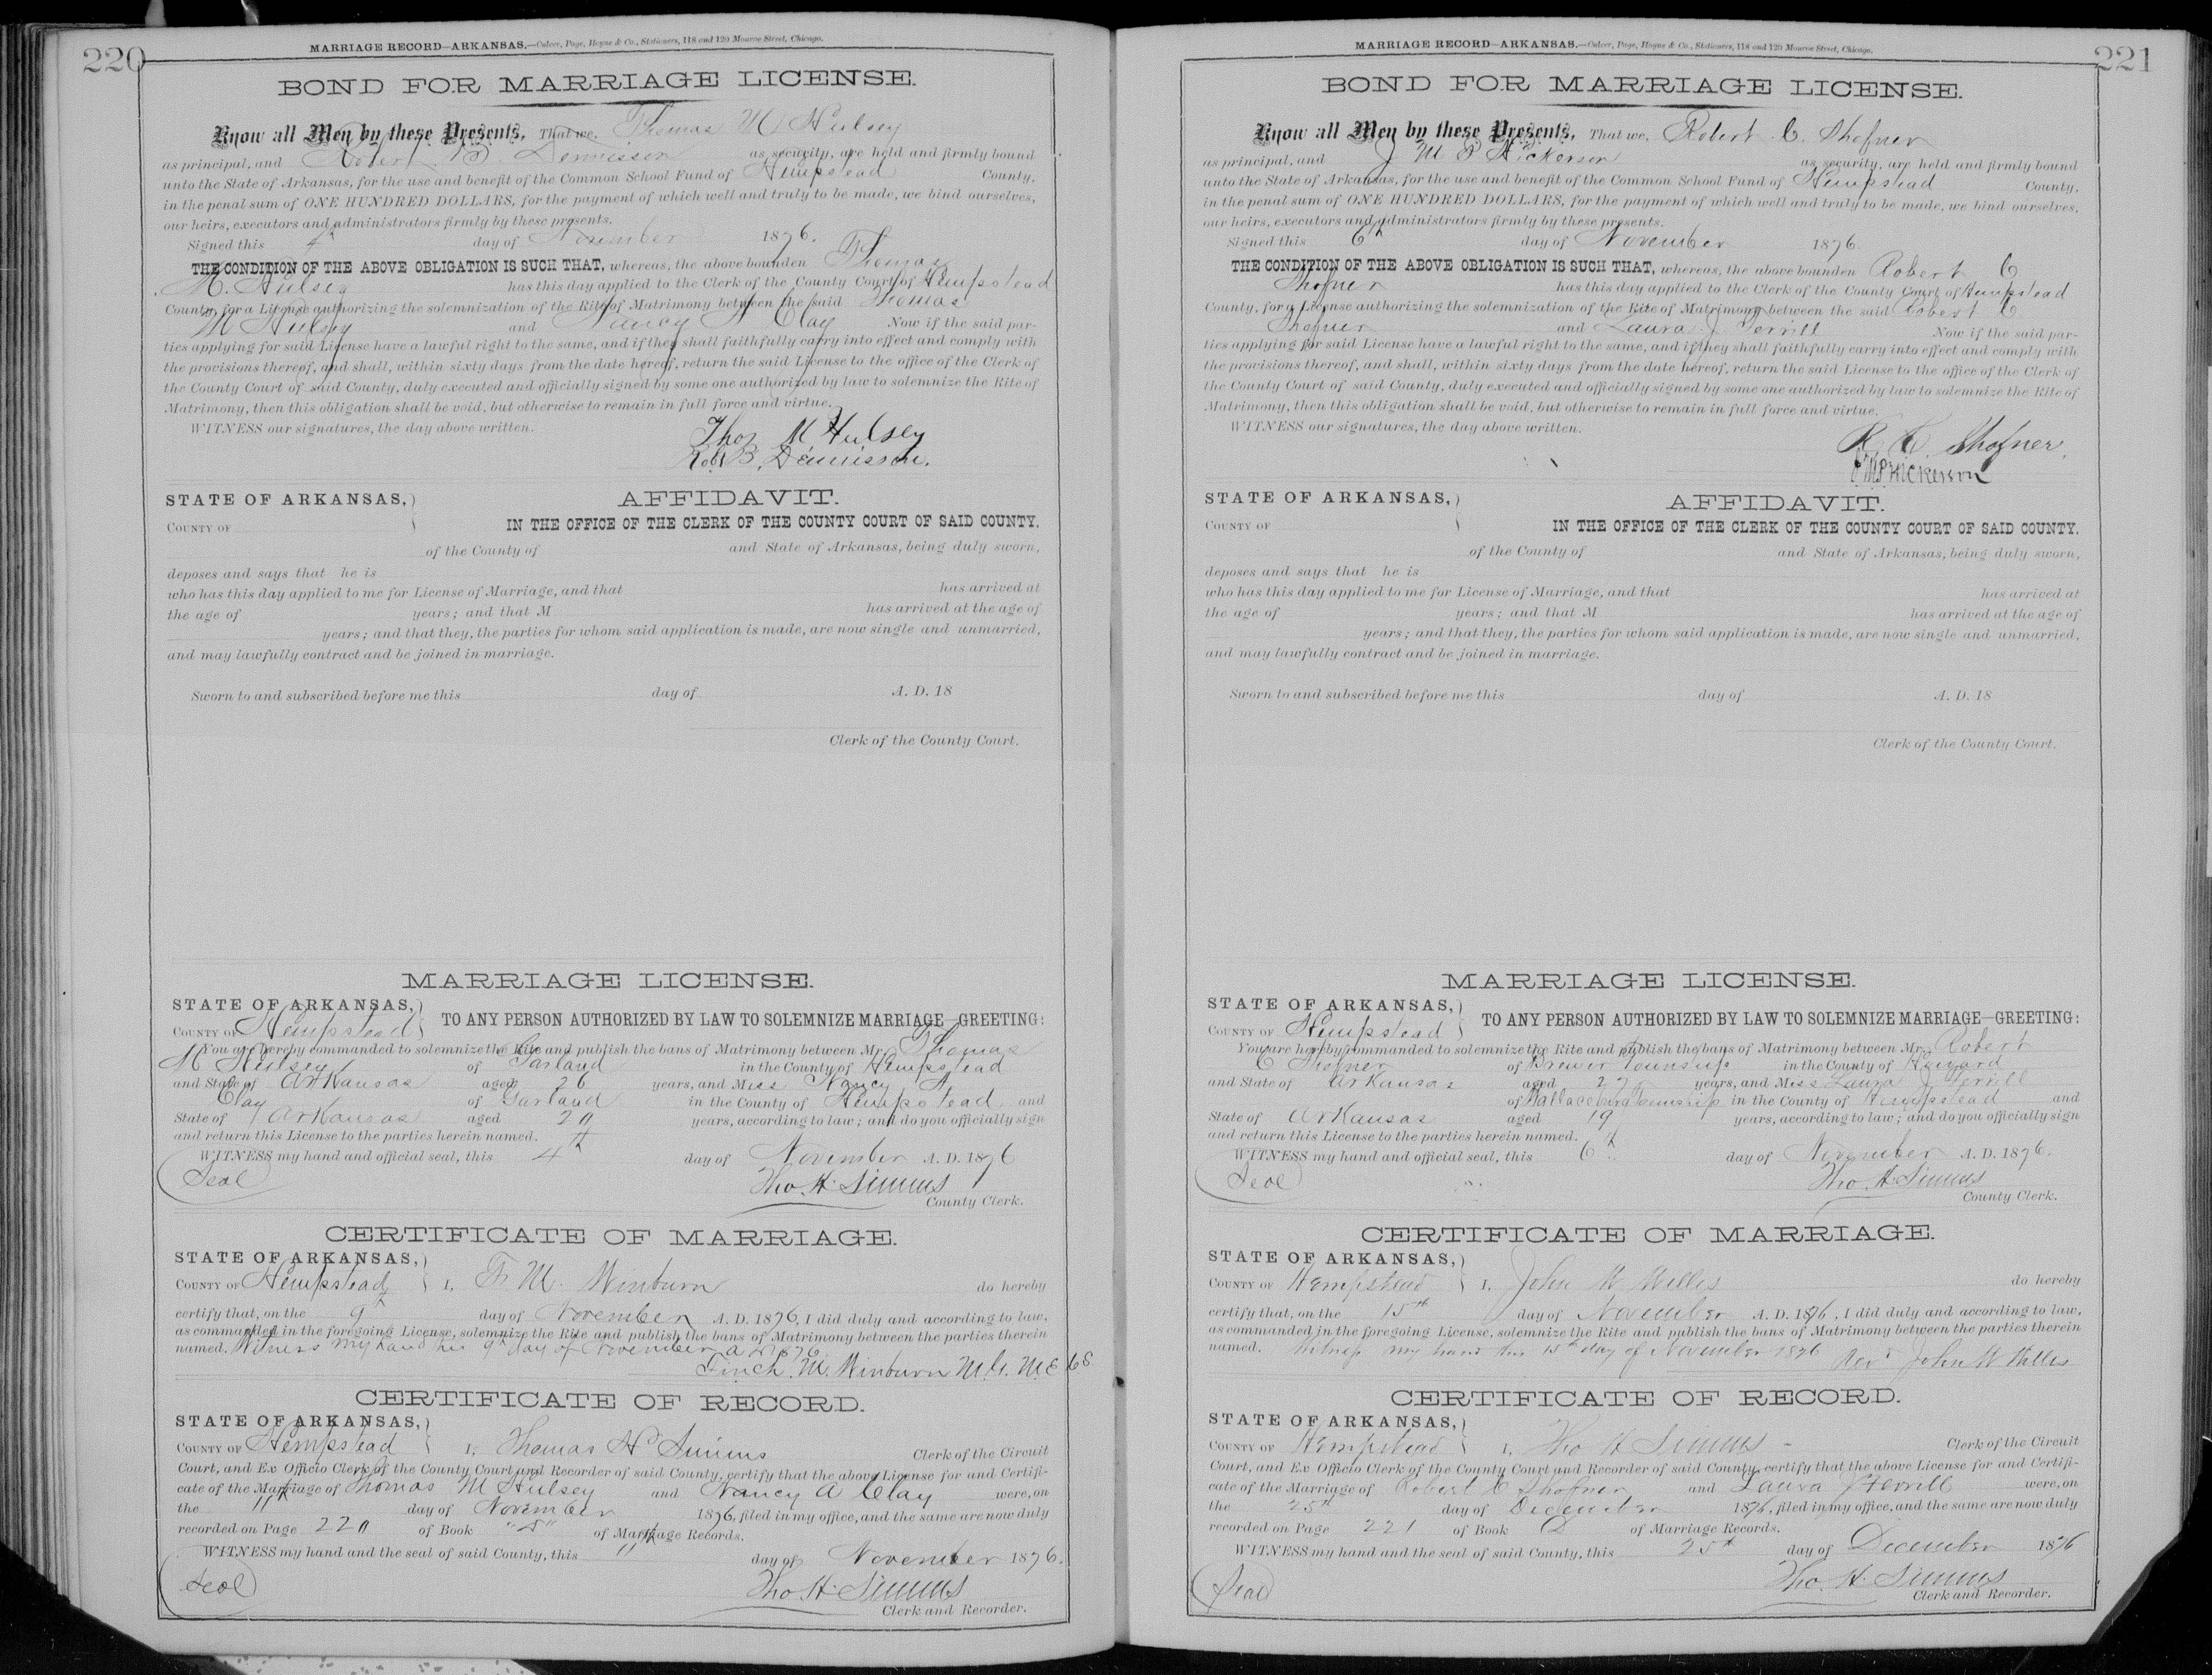 220
MARRIAGE RECORD—ARKANSAS.—Culver, Page, Hoyne & Co., Stationers, 118 and 120 Monroe Street, Chicago.
BOND FOR MARRIAGE LICENSE.
Know all Men by these Presents, That we, Thomas M Hulsey
as principal, and Robert B. Dennisson as security, are held and firmly bound
unto the State of Arkansas, for the use and benefit of the Common School Fund of Hempstead County,
in the penal sum of ONE HUNDRED DOLLARS, for the payment of which well and truly to be made, we bind ourselves,
our heirs, executors and administrators firmly by these presents.
Signed this 4th day of November 1876.
THE CONDITION OF THE ABOVE OBLIGATION IS SUCH THAT, whereas, the above bounden Thomas
M. Hulsey has this day applied to the Clerk of the County Court of Hempstead
County, for a License authorizing the solemnization of the Rite of Matrimony between the said Thomas
M Hulsey and Nancy A Clay Now if the said par-
ties applying for said License have a lawful right to the same, and if they shall faithfully carry into effect and comply with
the provisions thereof, and shall, within sixty days from the date hereof, return the said License to the office of the Clerk of
the County Court of said County, duly executed and officially signed by some one authorized by law to solemnize the Rite of
Matrimony, then this obligation shall be void, but otherwise to remain in full force and virtue.
WITNESS our signatures, the day above written.
Thos M Hulsey
Robt B. Dennisson.
STATE OF ARKANSAS,
AFFIDAVIT.
COUNTY OF
IN THE OFFICE OF THE CLERK OF THE COUNTY COURT OF SAID COUNTY.
of the County of and State of Arkansas, being duly sworn,
deposes and says that he is
who has this day applied to me for License of Marriage, and that has arrived at
the age of years; and that M has arrived at the age of
years; and that they, the parties for whom said application is made, are now single and unmarried,
and may lawfully contract and be joined in marriage.
Sworn to and subscribed before me this day of A. D. 18
Clerk of the County Court.
MARRIAGE LICENSE.
STATE OF ARKANSAS,
COUNTY OF Hempstead TO ANY PERSON AUTHORIZED BY LAW TO SOLEMNIZE MARRIAGE—GREETING:
You are hereby commanded to solemnize the Rite and publish the bans of Matrimony between Mr. Thomas
M Hulsey of Garland in the County of Hempstead
and State of Arkansas aged 26 years, and Miss Nancy A.
Clay of Garland in the County of Hempstead and
State of Arkansas aged 20 years, according to law; and do you officially sign
and return this License to the parties herein named.
WITNESS my hand and official seal, this 4th day of November A. D. 1876
Seal
Tho. H. Simms
County Clerk.
CERTIFICATE OF MARRIAGE.
STATE OF ARKANSAS,
COUNTY OF Hempstead I, F. M. Winburn do hereby
certify that, on the 9th day of November A. D. 1876, I did duly and according to law,
as commanded in the foregoing License, solemnize the Rite and publish the bans of Matrimony between the parties therein
named. Witness my hand this 9th day of November A D 1876
Finch. M. Winburn M.G. M.E.
CERTIFICATE OF RECORD.
STATE OF ARKANSAS,
COUNTY OF Hempstead I, Thomas H Simms Clerk of the Circuit
Court, and Ex Officio Clerk of the County Court and Recorder of said County, certify that the above License for and Certifi-
cate of the Marriage of Thomas M Hulsey and Nancy A Clay were, on
the 11th day of November 1876, filed in my office, and the same are now duly
recorded on Page 220 of Book of Marriage Records.
WITNESS my hand and the seal of said County, this 11th day of November 1876.
Seal
Tho. H. Simms
Clerk and Recorder.
221
MARRIAGE RECORD—ARKANSAS.—Culver, Page, Hoyne & Co., Stationers, 118 and 120 Monroe Street, Chicago.
BOND FOR MARRIAGE LICENSE.
Know all Men by these Presents, That we, Robert C. Shofner
as principal, and J M P Hickerson as security, are held and firmly bound
unto the State of Arkansas, for the use and benefit of the Common School Fund of Hempstead County,
in the penal sum of ONE HUNDRED DOLLARS, for the payment of which well and truly to be made, we bind ourselves,
our heirs, executors and administrators firmly by these presents.
Signed this 6th day of November 1876.
THE CONDITION OF THE ABOVE OBLIGATION IS SUCH THAT, whereas, the above bounden Robert C
Shofner has this day applied to the Clerk of the County Court of Hempstead
County, for a License authorizing the solemnization of the Rite of Matrimony between the said Robert C
Shofner and Laura J. Terrill Now if the said par-
ties applying for said License have a lawful right to the same, and if they shall faithfully carry into effect and comply with
the provisions thereof, and shall, within sixty days from the date hereof, return the said License to the office of the Clerk of
the County Court of said County, duly executed and officially signed by some one authorized by law to solemnize the Rite of
Matrimony, then this obligation shall be void, but otherwise to remain in full force and virtue.
WITNESS our signatures, the day above written.
R. C. Shofner.
J M P Hickerson
STATE OF ARKANSAS,
AFFIDAVIT.
COUNTY OF
IN THE OFFICE OF THE CLERK OF THE COUNTY COURT OF SAID COUNTY.
of the County of and State of Arkansas, being duly sworn,
deposes and says that he is
who has this day applied to me for License of Marriage, and that has arrived at
the age of years; and that M has arrived at the age of
years; and that they, the parties for whom said application is made, are now single and unmarried,
and may lawfully contract and be joined in marriage.
Sworn to and subscribed before me this day of A. D. 18
Clerk of the County Court.
MARRIAGE LICENSE.
STATE OF ARKANSAS,
COUNTY OF Hempstead TO ANY PERSON AUTHORIZED BY LAW TO SOLEMNIZE MARRIAGE—GREETING:
You are hereby commanded to solemnize the Rite and publish the bans of Matrimony between Mr. Robert
C Shofner of Brewer Township in the County of Howard
and State of Arkansas aged 27 years, and Miss Laura J Terrill
of Wallaceburg Township in the County of Hempstead and
State of Arkansas aged 19 years, according to law; and do you officially sign
and return this License to the parties herein named.
WITNESS my hand and official seal, this 6th day of November A. D. 1876.
Seal
Tho. H. Simms
County Clerk.
CERTIFICATE OF MARRIAGE.
STATE OF ARKANSAS,
COUNTY OF Hempstead I, John W Willis do hereby
certify that, on the 15th day of November A. D. 1876, I did duly and according to law,
as commanded in the foregoing License, solemnize the Rite and publish the bans of Matrimony between the parties therein
named. Witness my hand this 15th day of November 1876 Rev. John W Willis
CERTIFICATE OF RECORD.
STATE OF ARKANSAS,
COUNTY OF Hempstead I, Tho H Simms Clerk of the Circuit
Court, and Ex Officio Clerk of the County Court and Recorder of said County, certify that the above License for and Certifi-
cate of the Marriage of Robert C Shofner and Laura J Terrill were, on
the 25th day of December 1876, filed in my office, and the same are now duly
recorded on Page 221 of Book D of Marriage Records.
WITNESS my hand and the seal of said County, this 25th day of December 1876
Seal
Tho. H. Simms
Clerk and Recorder.